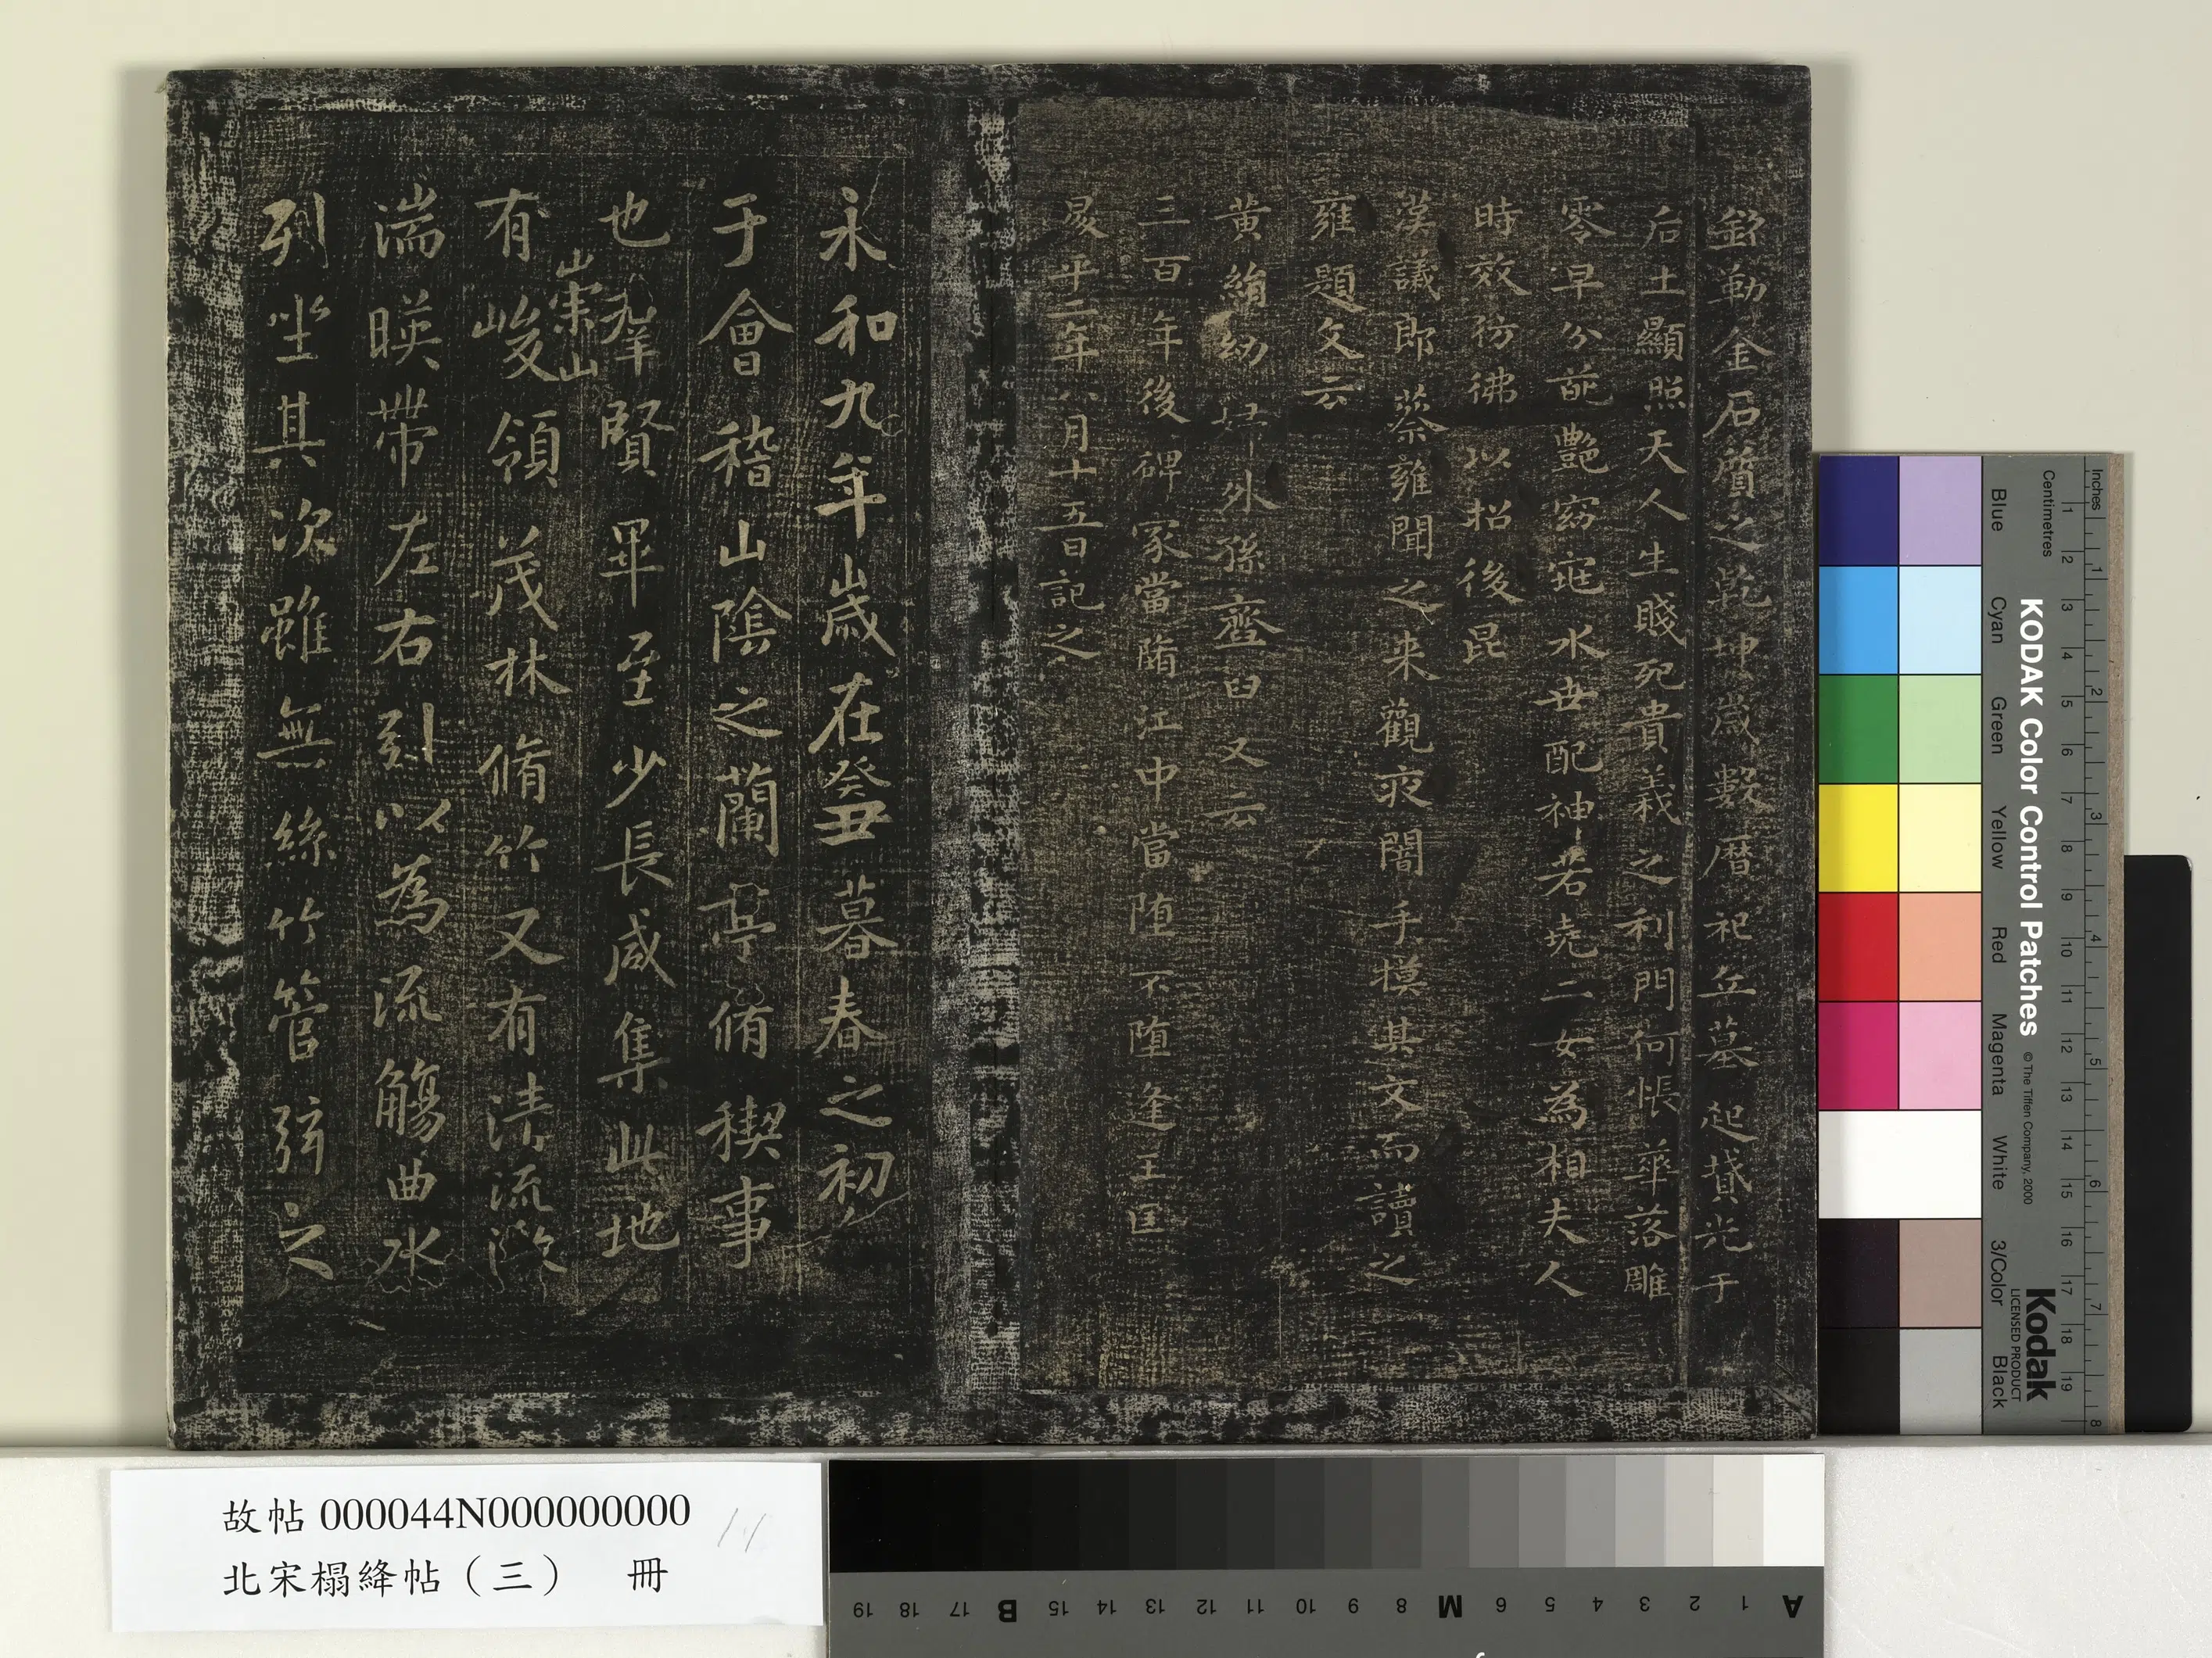 銘勒金石質之乾坤歲數曆祀丘墓起墳光于
后土顯照天人生賤死貴義之利門何悵華落雕
零早分葩艷窈窕永世配神若堯二女為相夫人
時效彷彿以招後昆
漢議郎蔡雍聞之来觀夜闇手摸其文而讀之
雍題文云
黃絹幼婦外孫齏臼又云
三百年後碑冢當墮江中當墮不墮逢王匡
昇平二年八月十五日記之
永和九年歲在癸丑暮春之初
于會稽山陰之蘭亭脩稧事
也羣賢畢至少長咸集此地
有崇山峻領茂林脩竹又有清流激
湍暎帶左右引以為流觴曲水
列坐其次雖無絲竹管弦之
故帖 000044N000000000
北宋榻絳帖（三） 冊
Inches
Centimetres
KODAK Color Control Patches © The Tiffen Company, 2000
Kodak
LICENSED PRODUCT
Blue Cyan Green Yellow Red Magenta White 3/Color Black
1 2 3 4 5 6 7 8 9 10 11 12 13 14 15 16 17 18 19
1 2 3 4 5 6 7 8
A 1 2 3 4 5 6 M 8 9 10 11 12 13 14 15 B 17 18 19